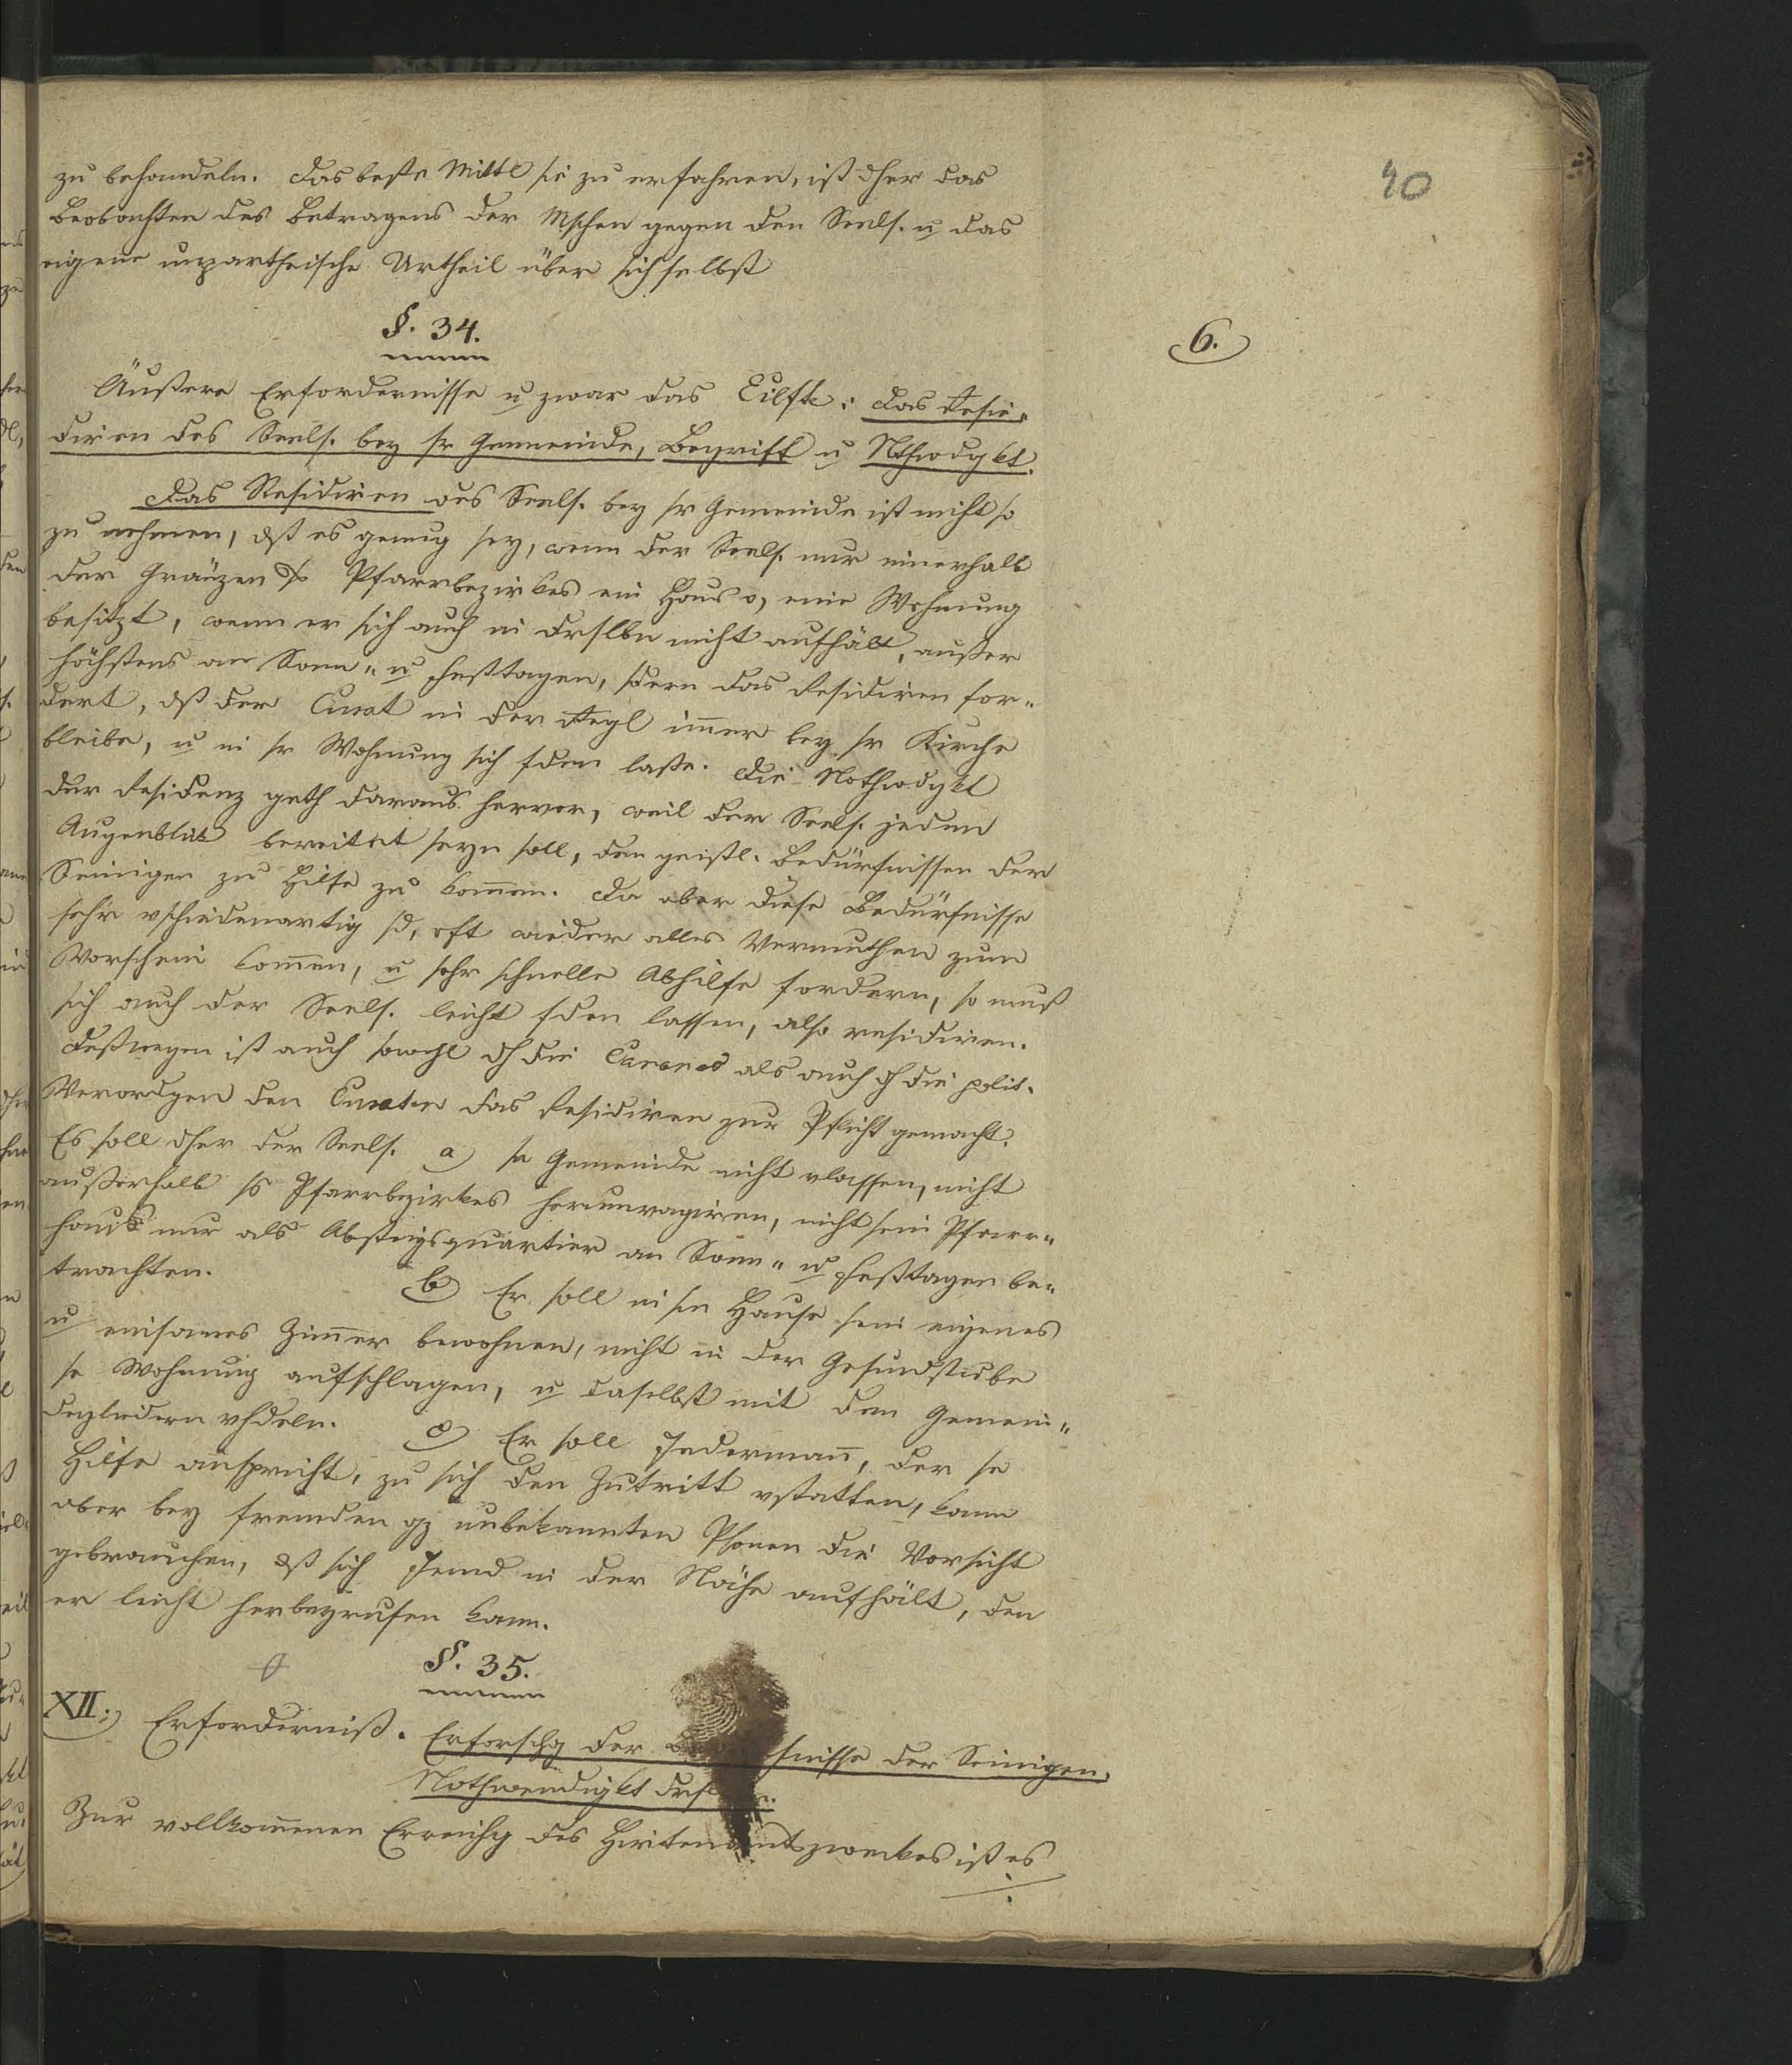 40
zu behandeln. Das beste Mittl sie zu erfahren, ist dher das
Beobachten des Betragens der Mschen gegen den Seels. u das
eigene unpartheische Urtheil über sich selbst
§. 34.
6.
Äußere Erfordernisse u zwar das Eilfte: das Resi-
diren des Seels. bey sr Gemeinde, Begriff u Nthwdgkt.
Das Residiren des Seels. bey sr Gemeinde ist nicht so
zu nehmen, dß es genug sey, wenn der Seels. nur innerhalb
der Gränzen ds Pfarrbezirkes ein Haus o, eine Wohnung
besitzt, wenn er sich auch in drslbn nicht aufhält, außer
höchstens an Sonn- u Festtagen, sdern das Residiren for-
dert, dß der Curat in der Regl im̅er bey sr Kirche
bleibe, u in sr Wohnung sich fden laße. Die Nothwdgkt
der Residenz geth daraus hervor, weil der Seels. jeden
Augenblick bereitet seyn soll, den geistl. Bedürfnissen der
Seinigen zu Hilfe zu kom̅en. Da aber diese Bedürfnisse
sehr vschiedenartig sd, oft wieder alles Vermuthen zum
Vorschein kom̅en, u sehr schnelle Abhilfe fordern, so muß
sich auch der Seels. leicht fden lassen, also residiren.
Deßwegen ist auch sowohl dh die Canones als auch dh die polit.
Verordgen den Curaten das Residiren zur Pflicht gemacht.
Es soll dher der Seels. a) se Gemeinde nicht vlassen, nicht
außerhalb ss Pfarrbezirkes herumvagiren, nicht sein Pfarr-
haus nur als Absteigsquartier an Sonn- u Festtagen be-
trachten. b) Er soll in sm Hause sein eigenes
u einsames Zim̅er bewohnen, nicht in der Gesindstube
se Wohnung aufschlagen, u daselbst mit den Gemein-
degliedern vhdeln. c) Er soll Jederman̅, der se
Hilfe anspricht, zu sich den Zutritt vstatten, kann
aber bey fremden gz unbekannten Psonen die Vorsicht
gebrauchen, dß sich Jemd in der Nähe aufhält, den
er leicht herbeyrufen kann.
§. 35.
XII.) Erforderniß. Erforschg der fnisse der Seinigen.
Nothwendigkt
Zur vollkom̅enen Erreichg des Hirtenamtszweckes ist es